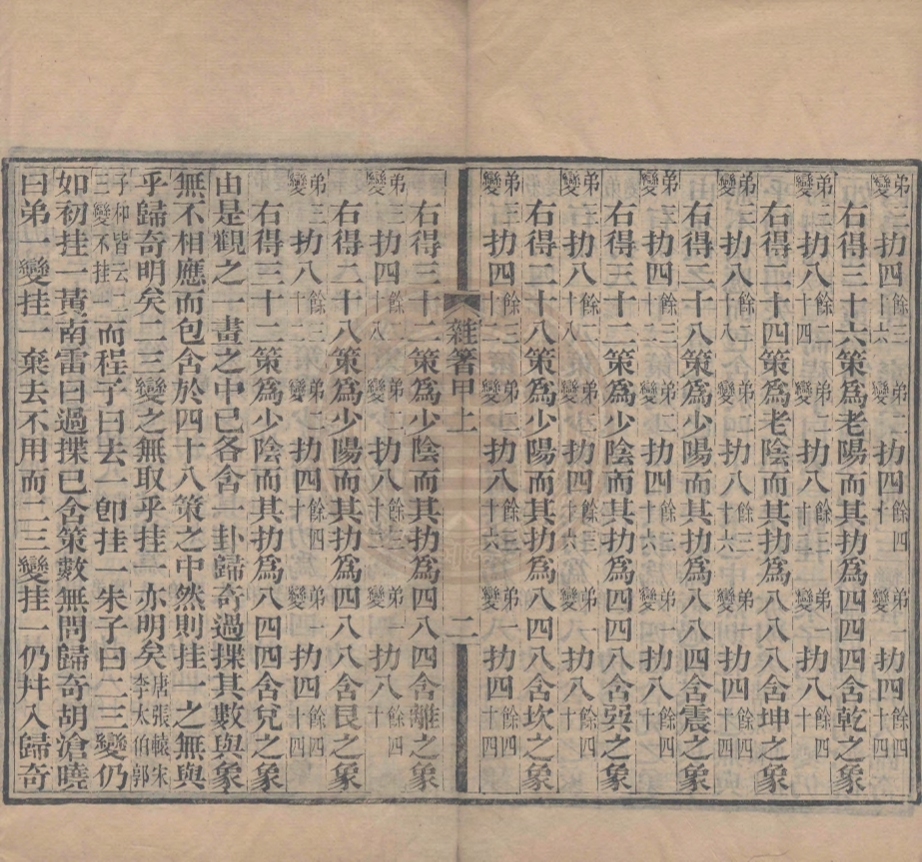 弟三變扐四餘三十六弟二變扐四餘四十弟一變扐四餘四十四
右得三十六策爲老陽而其扐爲四四四含乾之象
弟三變扐八餘二十四弟二變扐八餘三十二弟一變扐八餘四十
右得二十四策爲老陰而其扐爲八八八含坤之象
弟三變扐八餘二十八弟二變扐八餘三十六弟一變扐四餘四十四
右得二十八策爲少陽而其扐爲八八四含震之象
弟三變扐四餘三十二弟二變扐四餘三十六弟一變扐八餘四十
右得三十二策爲少陰而其扐爲四四八含巽之象
弟三變扐八餘二十八弟二變扐四餘三十六弟一變扐八餘四十
右得二十八策爲少陽而其扐爲八四八含坎之象
弟三變扐四餘三十二弟二變扐八餘三十六弟一變扐四餘四十四
雜箸甲上 二
右得三十二策爲少陰而其扐爲四八四含離之象
弟三變扐四餘二十八弟二變扐八餘三十二弟一變扐八餘四十
右得二十八策爲少陽而其扐爲四八八含艮之象
弟三變扐八餘三十二弟二變扐四餘四十弟一變扐四餘四十四
右得三十二策爲少陰而其扐爲八四四含兌之象
由是觀之一畫之中已各含一卦歸奇過揲其數與象
無不相應而包含於四十八策之中然則挂一之無與
乎歸奇明矣二三變之無取乎挂一亦明矣唐張轅宋李太伯郭
子和皆云二三變不挂一而程子曰去一卽挂一朱子曰二三變仍
如初挂一黃南雷曰過揲已含策數無問歸奇胡滄曉
曰弟一變挂一棄去不用而二三變挂一仍幷入歸奇